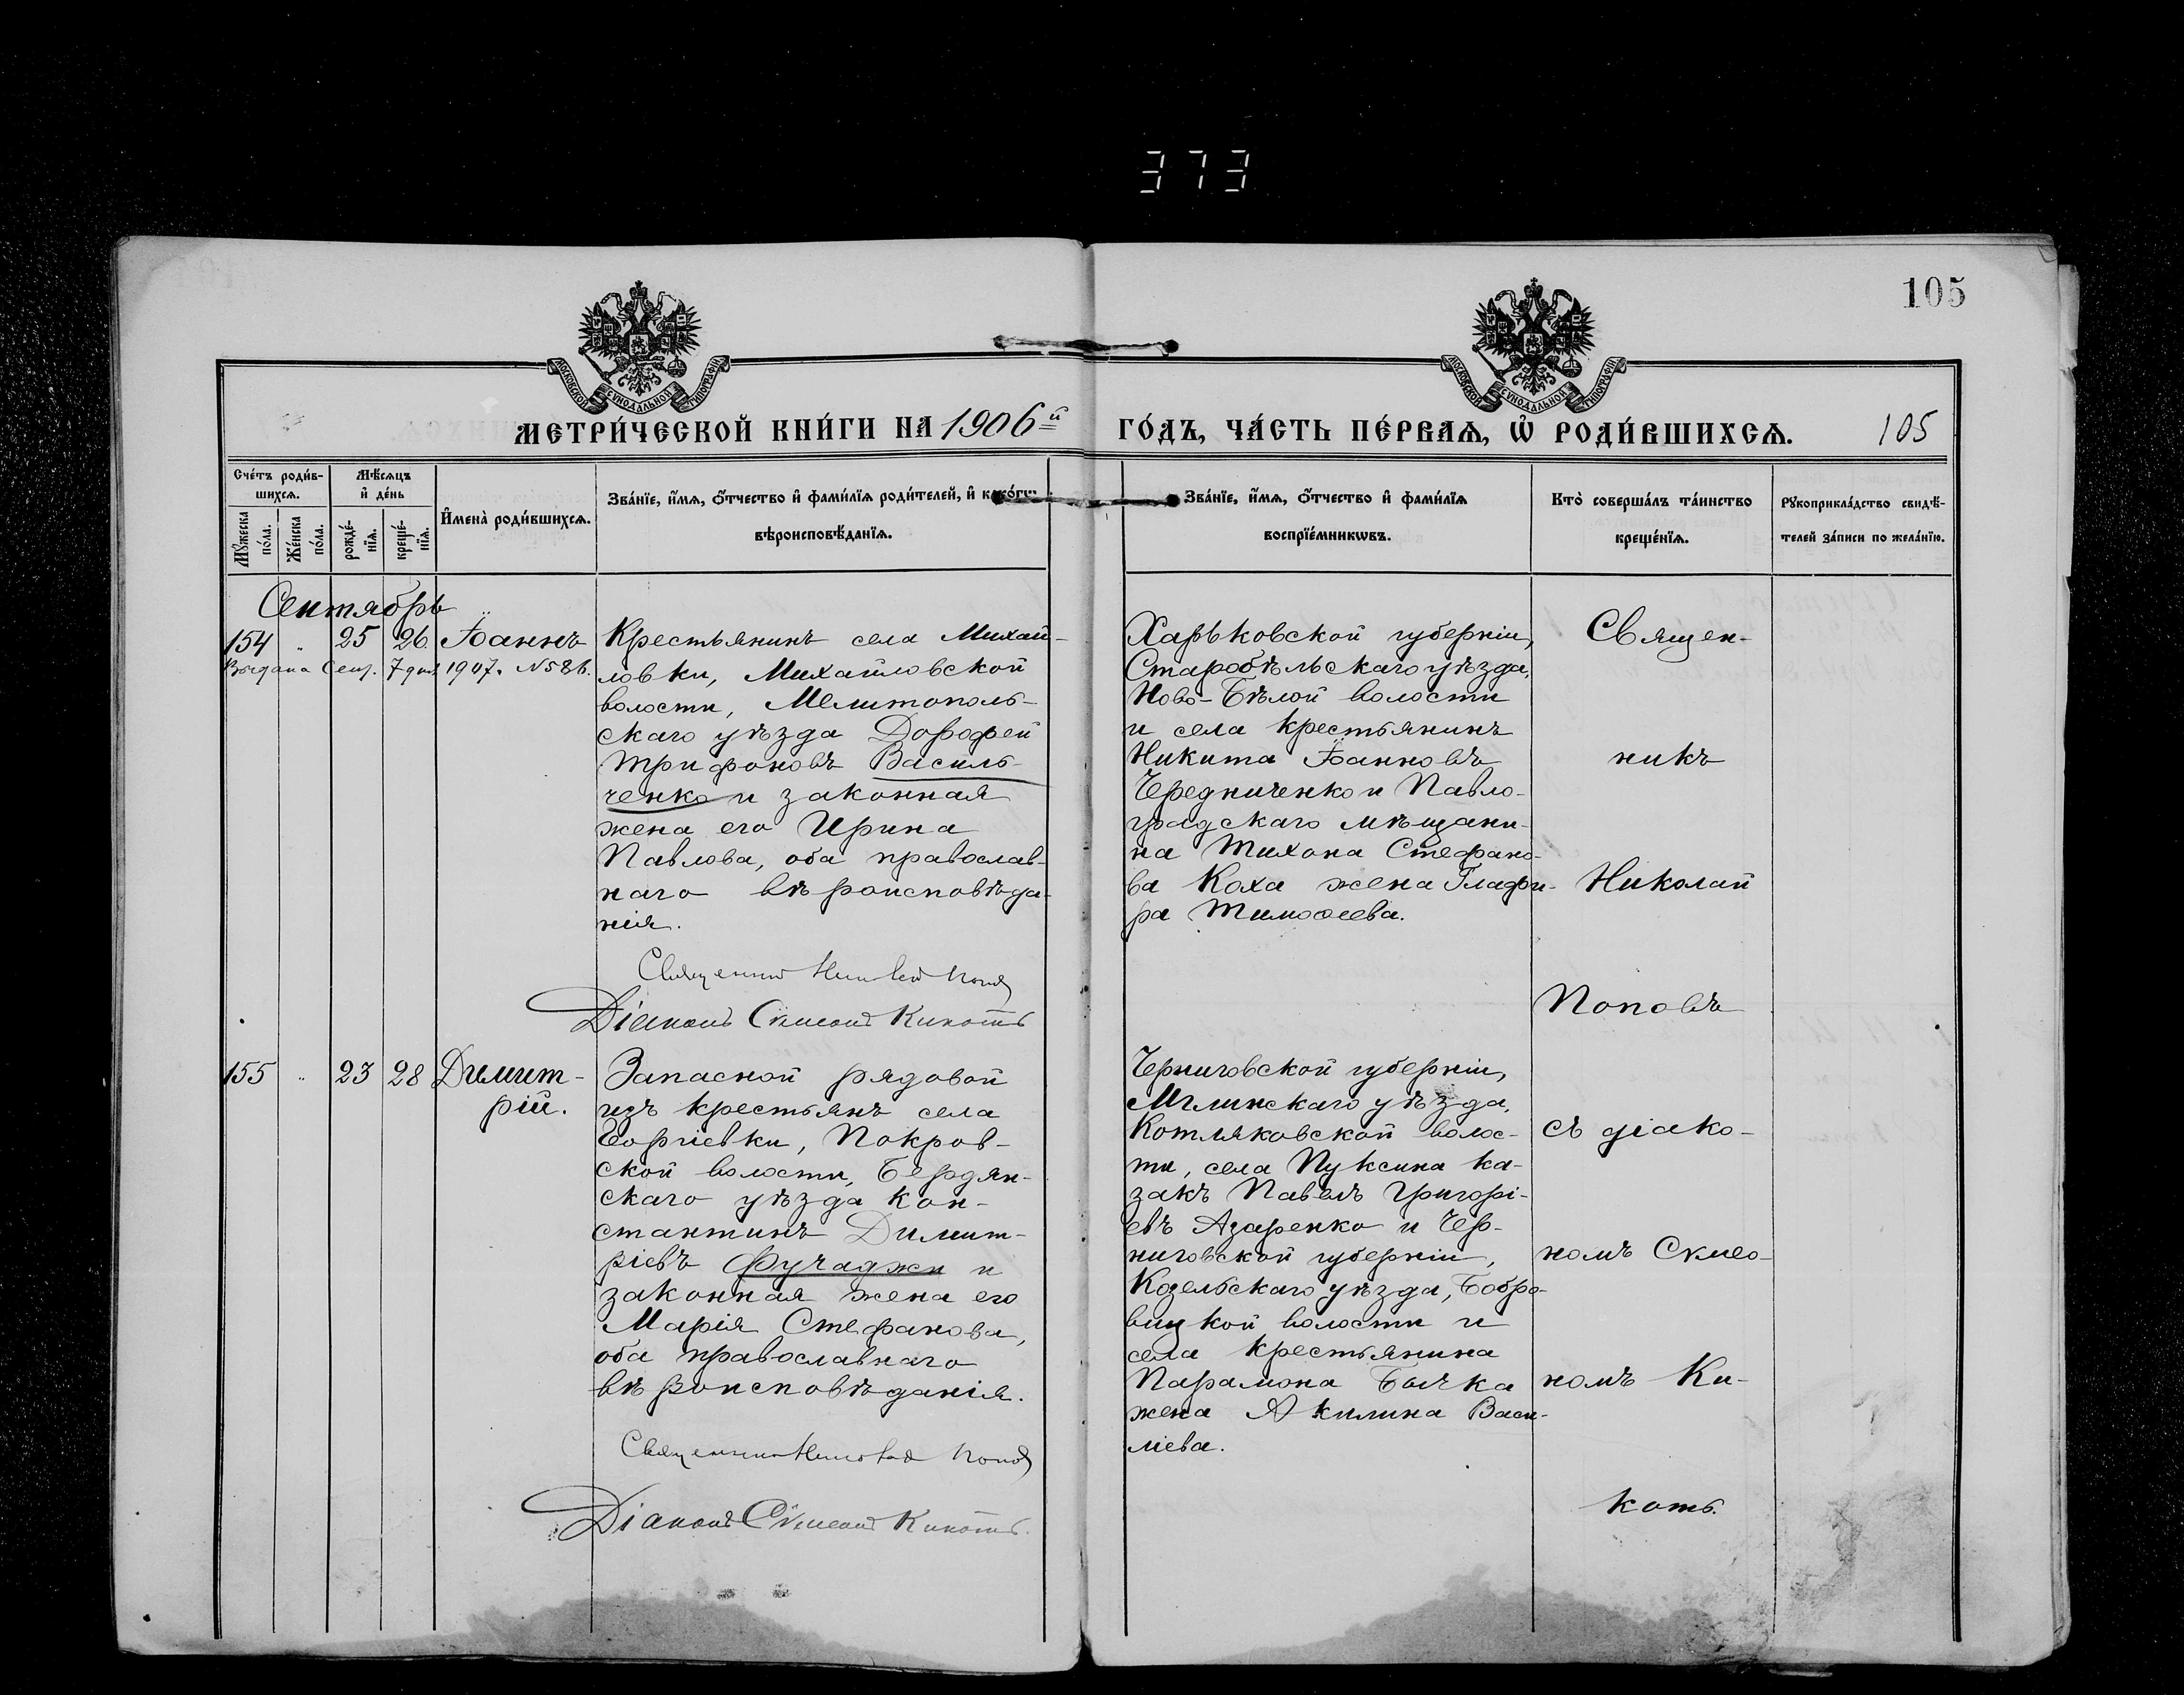 373
105
МОСКОВСКОЙ СѴНОДАЛЬНОЙ ТИПОГРАФІИ
МОСКОВСКОЙ СѴНОДАЛЬНОЙ ТИПОГРАФІИ
МЕТРИ́ЧЕСКОЙ КНИ́ГИ НА 1906й ГО́ДЪ, ЧА́СТЬ ПЕ́РВАѦ, Ѡ РОДИ́ВШИХСѦ. 105
Сче́тъ роди́в-
шихсѧ.
Мꙋжеска
по́ла.
Же́нска
по́ла.
Мѣсѧцъ
и де́нь
рожде́-
нїѧ.
креще́-
нїѧ.
Имена̀ роди́вшихсѧ.
Зва́нїе, и́мѧ, о́тчество и фами́лїѧ роди́телей, и како́гѡ
вѣроисповѣ́данїѧ.
Зва́нїе, и́мѧ, о́тчество и фами́лїѧ
воспрїе́мникѡвъ.
Кто̀ соверша́лъ та́инство
креще́нїѧ.
Рꙋкоприкла́дство свидѣ́-
телей за́писи по жела́нїю.
Сентябрь
154 " 25 26 Іоаннъ
Выдана Сент. 7 дня 1907. №586.
Крестьянинъ села Михай-
ловки, Михайловской
волости, Мелитополь-
скаго уѣзда Дорофей
Трифоновъ Василь-
ченко и законная
жена его Ирина
Павлова, оба православ-
наго вѣроисповѣда-
нія.
Священникъ Николай Поповъ
Діаконъ Сѵмеонъ Кикоть
Харьковской губерніи,
Старобѣльскаго уѣзда,
Ново-Бѣлой волости
и села крестьянинъ
Никита Іоанновъ
Чередниченко и Павло-
градскаго мѣщани-
на Тихона Стефано-
ва Коха жена Глафи-
ра Тимоѳеева.
Священ-
никъ
Николай
Поповъ
155 " 23 28 Димит-
рій.
Запасной рядовой
изъ крестьянъ села
Георгіевки, Покров-
ской волости, Бердян-
скаго уѣзда Кон-
стантинъ Димит-
ріевъ Фучаджи и
законная жена его
Марія Стефанова,
оба православнаго
вѣроисповѣданія.
Священникъ Николай Поповъ
Діаконъ Сѵмеонъ Кикоть.
Черниговской губерніи,
Мглинскаго уѣзда,
Котляковской волос-
ти, села Пуксина ка-
закъ Павелъ Григорі-
евъ Азаренко и Чер-
ниговской губерніи,
Козельскаго уѣзда, Бобро-
вицкой волости и
села крестьянина
Парамона Бычка
жена Акилина Васи-
ліева.
съ діако-
номъ Сѵмео-
номъ Ки-
коть.